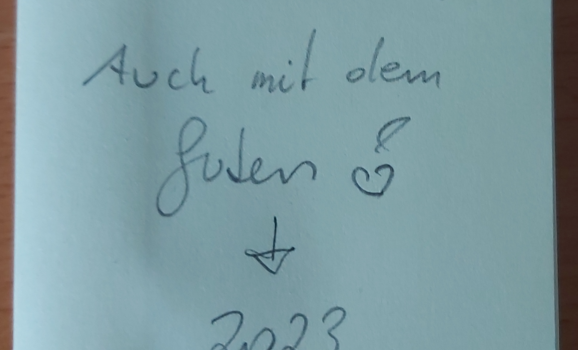 Auch mit dem
guten
2023